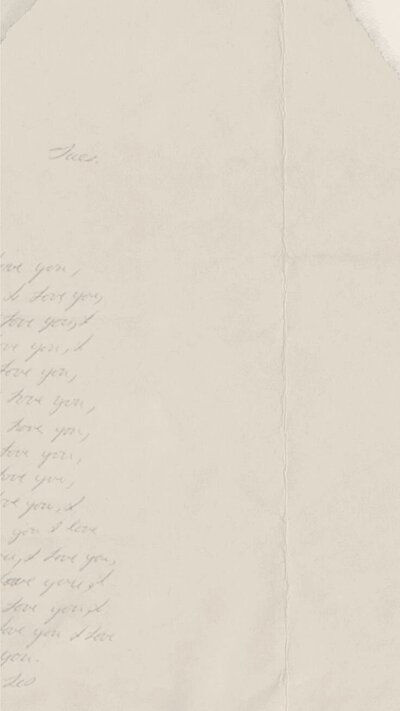 Tues.
ove you,
I love you,
love you, I
ove you, I
love you,
love you,
love you,
love you,
love you,
ove you, I
you I love
ou, I love you,
love you, I
love you, I
love you I love
you.